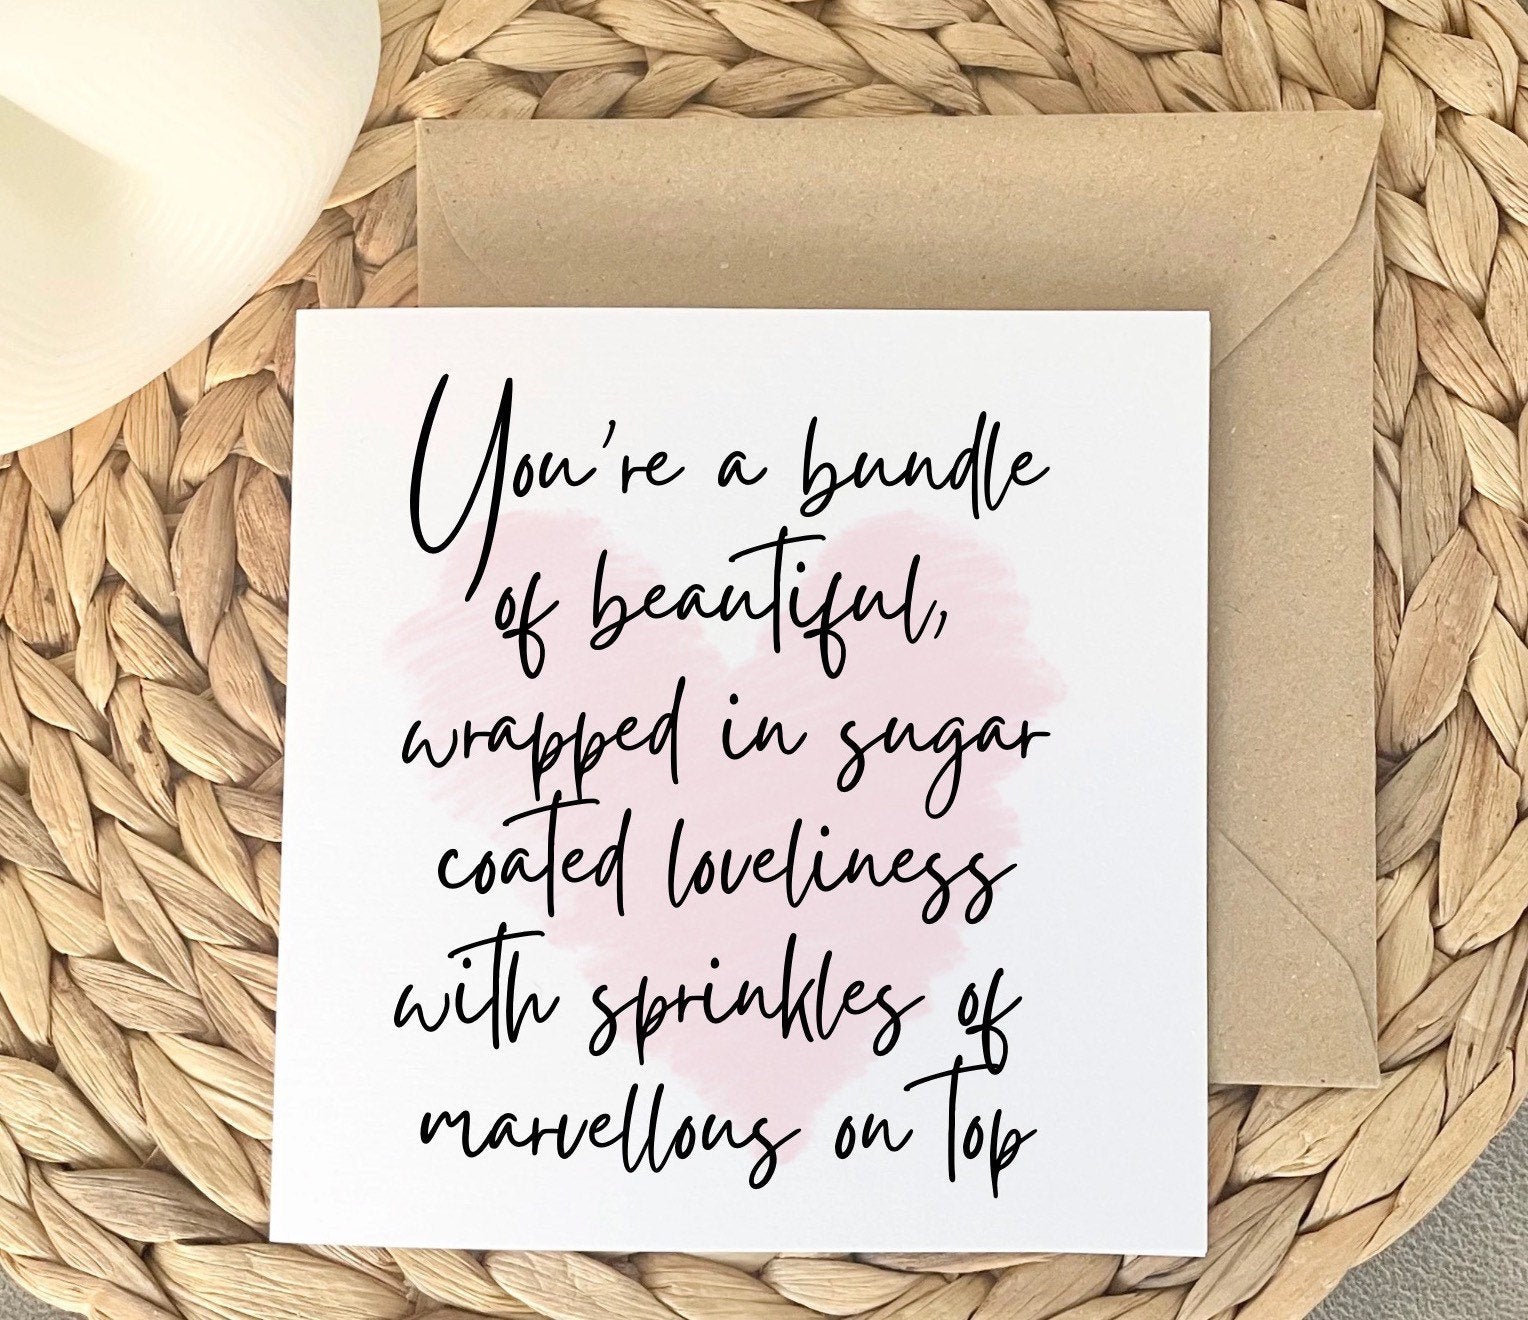 You're a bundle
of beautiful,
wrapped in sugar
coated loveliness
with sprinkles of
marvellous on top